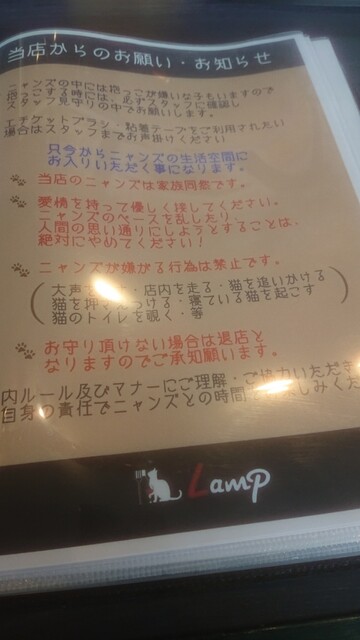 当店からのお願い・お知らせ
ニャンズの中には抱っこが嫌いな子もいますので
抱っこする時には、必ずスタッフに確認し
スタッフ見守りの中でお願いします。
エチケットブラシ・粘着テープをご利用されたい
場合はスタッフまでお声掛けください
只今からニャンズの生活空間に
お入りいただく事になります。
当店のニャンズは家族同然です。
愛情を持って優しく接してください。
ニャンズのペースを乱したり、
人間の思い通りにしようとすることは、
絶対にやめてください!
ニャンズが嫌がる行為は禁止です。
大声 ・店内を走る・猫を追いかける
猫を押 つける・寝ている猫を起こす
猫のトイレを覗く・等
お守り頂けない場合は退店と
なりますのでご承知願います。
内ルール及びマナーにご理解・ご協力いただき
自身の責任でニャンズとの時間 しみくだ
Lamp